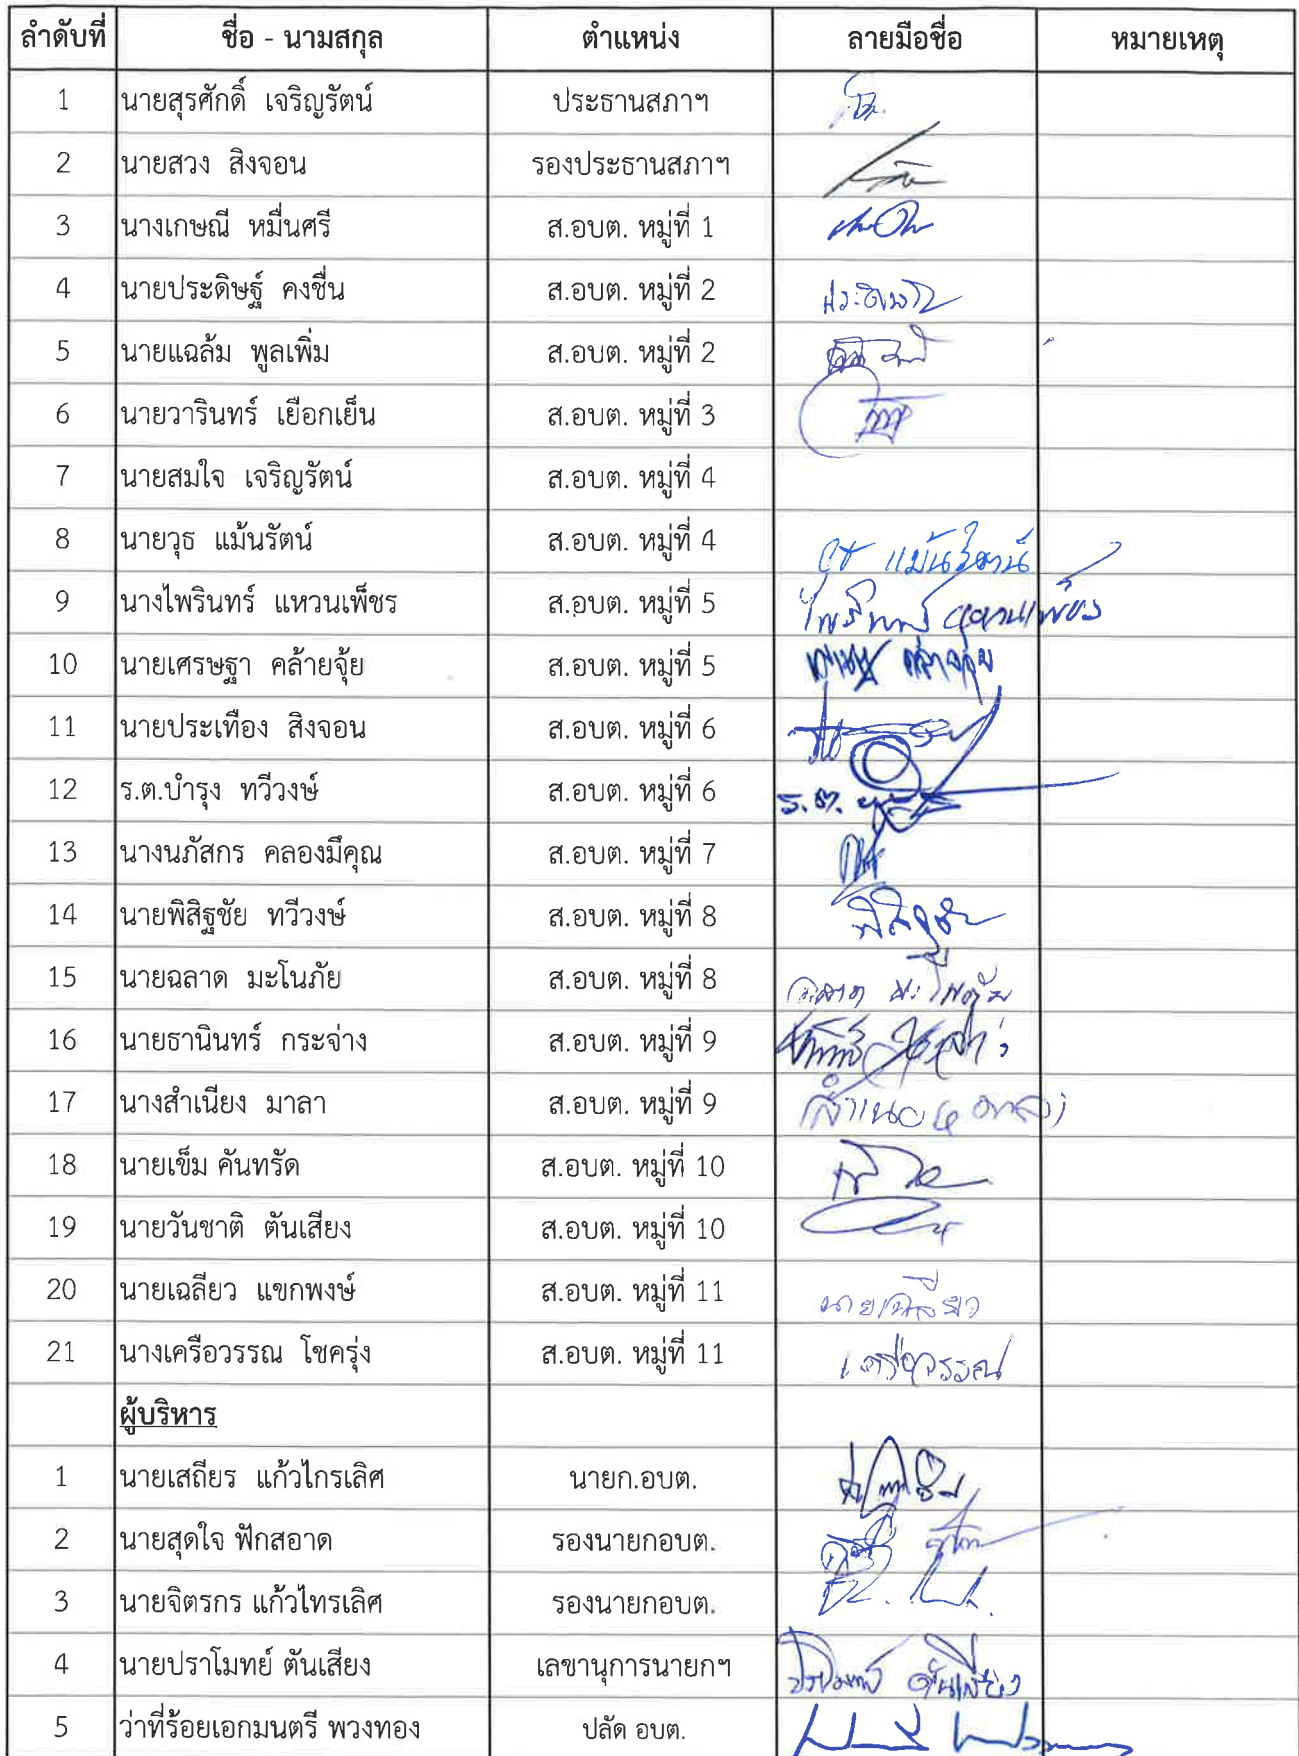 ลำดับที่ ชื่อ - นามสกุล ตำแหน่ง ลายมือชื่อ หมายเหตุ
1 นายสุรศักดิ์ เจริญรัตน์ ประธานสภาฯ
2 นายสวง สิงจอน รองประธานสภาฯ
3 นางเกษณี หมื่นศรี ส.อบต. หมู่ที่ 1
4 นายประดิษฐ์ คงชื่น ส.อบต. หมู่ที่ 2
5 นายแฉล้ม พูลเพิ่ม ส.อบต. หมู่ที่ 2
6 นายวารินทร์ เยือกเย็น ส.อบต. หมู่ที่ 3
7 นายสมใจ เจริญรัตน์ ส.อบต. หมู่ที่ 4
8 นายวุธ แม้นรัตน์ ส.อบต. หมู่ที่ 4 วุธ แม้นรัตน์
9 นางไพรินทร์ แหวนเพ็ชร ส.อบต. หมู่ที่ 5 ไพรินทร์ แหวนเพ็ชร
10 นายเศรษฐา คล้ายจุ้ย ส.อบต. หมู่ที่ 5
11 นายประเทือง สิงจอน ส.อบต. หมู่ที่ 6
12 ร.ต.บำรุง ทวีวงษ์ ส.อบต. หมู่ที่ 6 ร.ต.
13 นางนภัสกร คลองมีคุณ ส.อบต. หมู่ที่ 7
14 นายพิสิฐชัย ทวีวงษ์ ส.อบต. หมู่ที่ 8
15 นายฉลาด มะโนภัย ส.อบต. หมู่ที่ 8 ฉลาด มะโนภัย
16 นายธานินทร์ กระจ่าง ส.อบต. หมู่ที่ 9
17 นางสำเนียง มาลา ส.อบต. หมู่ที่ 9
18 นายเข็ม คันทรัด ส.อบต. หมู่ที่ 10
19 นายวันชาติ ตันเสียง ส.อบต. หมู่ที่ 10
20 นายเฉลียว แขกพงษ์ ส.อบต. หมู่ที่ 11 นายเฉลียว
21 นางเครือวรรณ โชครุ่ง ส.อบต. หมู่ที่ 11 เครือวรรณ
ผู้บริหาร
1 นายเสถียร แก้วไกรเลิศ นายก.อบต.
2 นายสุดใจ ฟักสอาด รองนายกอบต.
3 นายจิตรกร แก้วไทรเลิศ รองนายกอบต.
4 นายปราโมทย์ ตันเสียง เลขานุการนายกฯ
5 ว่าที่ร้อยเอกมนตรี พวงทอง ปลัด อบต.